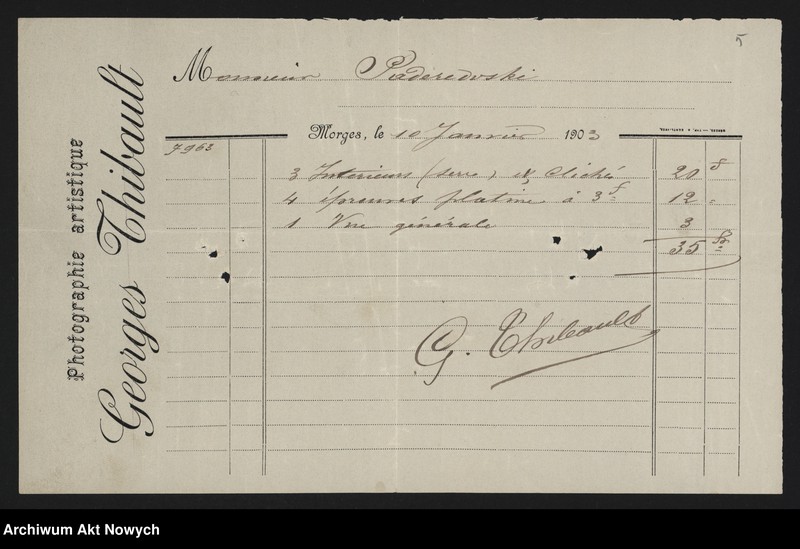 5
Monsieur Paderewski
Morges, le 10 Janvier 1903
7963
3 Interieurs (serre) et Clichés 20 f
4 épreuves platine à 3 f 12 "
1 Vue générale 3
35 fr
G. Thibault
Photographie artistique
Georges Thibault
Archiwum Akt Nowych